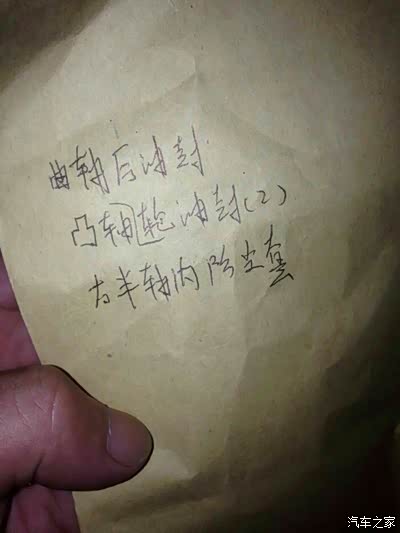 曲轴后油封
凸轴轮油封(2)
右半轴内防尘套
汽车之家